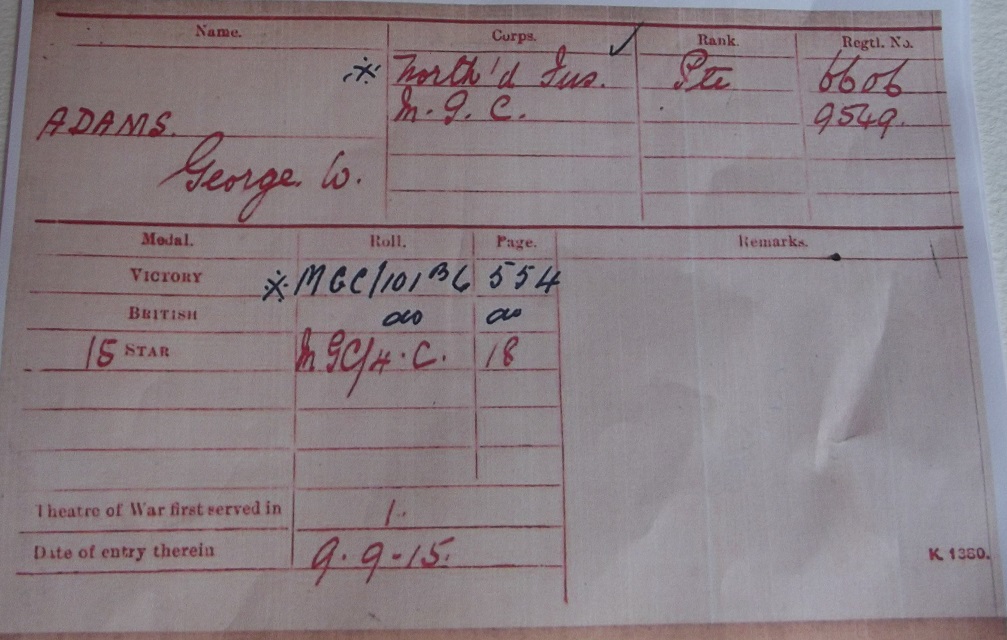 Name. Corps. Rank. Regtl. No.
※ North'd Fus. Pte 6606
ADAMS. M. G. C. 9549.
George. W.
Medal. Roll. Page. Remarks.
VICTORY ※ MGC/101 B6 554
BRITISH do do
15 STAR MGC/4.C. 18
Theatre of War first served in 1.
Date of entry therein 9.9-15.
K. 1380.